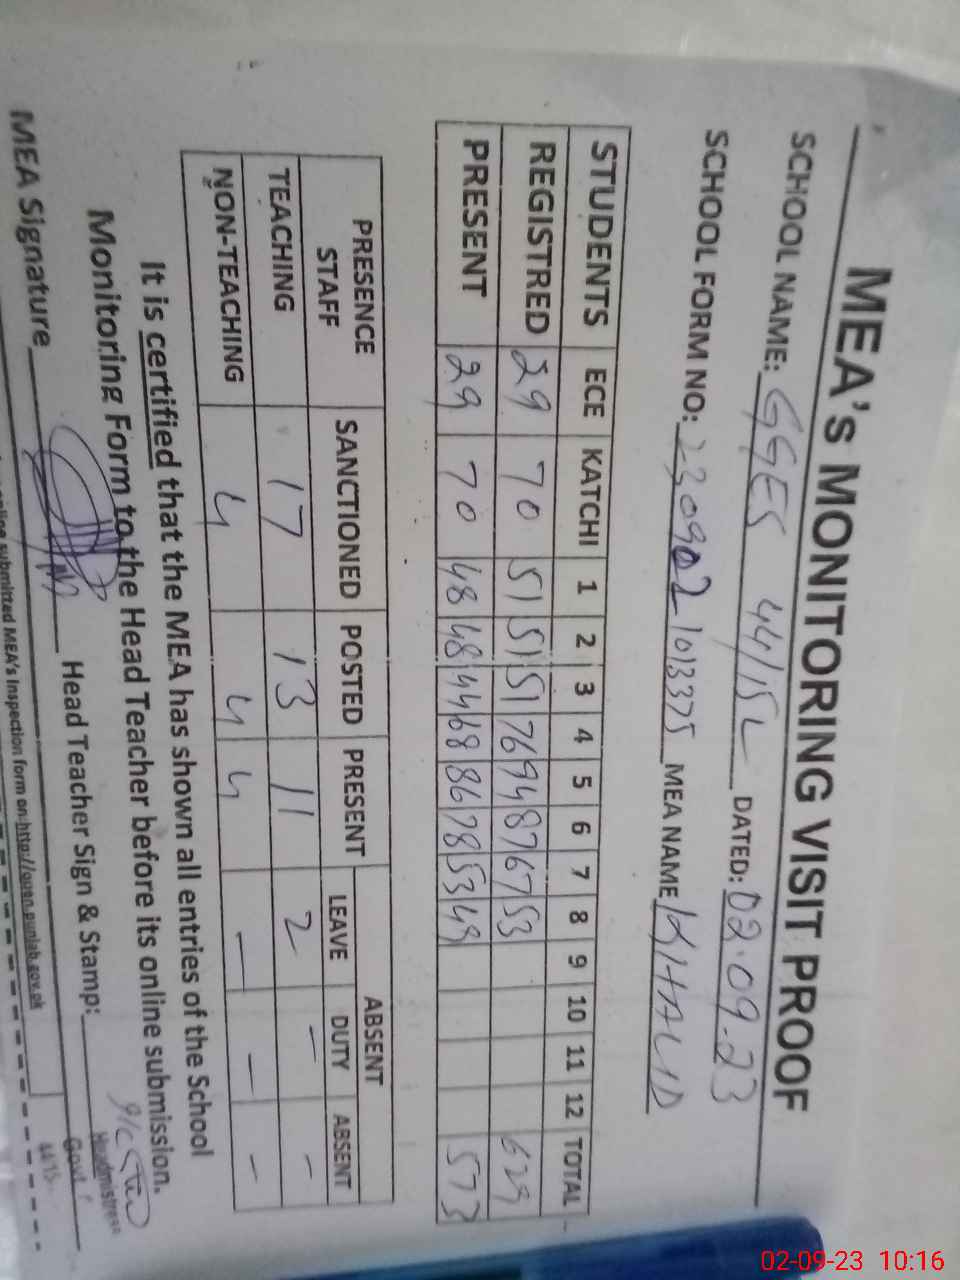 MEA's MONITORING VISIT PROOF
SCHOOL NAME: GGES 44/15L DATED: 02.09.23
SCHOOL FORM NO: MEA NAME KHALID
STUDENTS ECE KATCHI 1 2 3 4 5 6 7 8 9 10 11 12 TOTAL
REGISTRED 29 70 51 51 51 76 94 87 67 53 629
PRESENT 29 70 48 48 44 68 86 78 53 49 573
PRESENCE STAFF SANCTIONED POSTED PRESENT ABSENT
LEAVE DUTY ABSENT
TEACHING 17 13 11 2 - -
NON-TEACHING 4 4 4 - - -
It is certified that the MEA has shown all entries of the School
Monitoring Form to the Head Teacher before its online submission.
MEA Signature Head Teacher Sign & Stamp:
Headmistress
Govt
online submitted MEA's Inspection form on:http://open.punjab.gov.pk
02-09-23 10:16